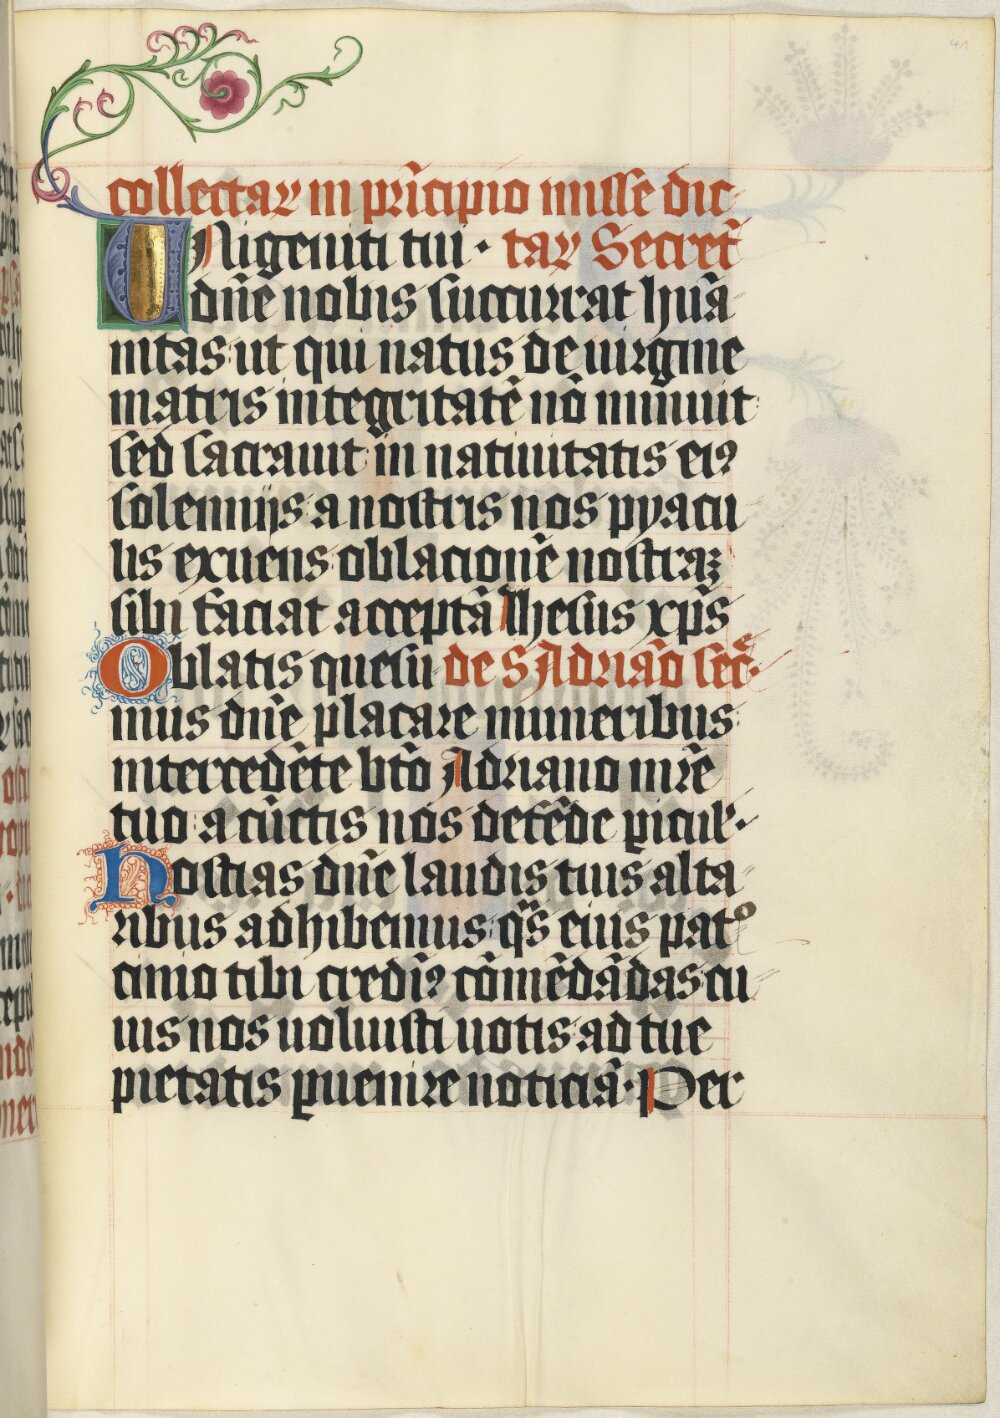 collectar in prīcipio misse dic
UNigeniti tui · tar Secret̄
dn̄e nobis succurrat huā
nitas ut qui natus de uirgine
matris integritatē nō minuit
sed sacrauit in natiuitatis eiꝰ
solemnijs a nostris nos pyacu
lis exuens oblacionē nostraꝫ
sibi faciat acceptā Ihesus xp̄s
Oblatis quesu de S Adriāo sec̄
mus dn̄e placare muneribus
intercedēte btō Adriano mr̄e
tuo a cūctis nos defēde ꝑicul'·
Hostias dn̄e laudis tuis alta
ribus adhibemus qs̄ eius patº
cinio tibi crediꝰ cōmēdādas cu
ius nos uoluisti uotis ad tue
pietatis ꝑuenire noticiā· Per
41